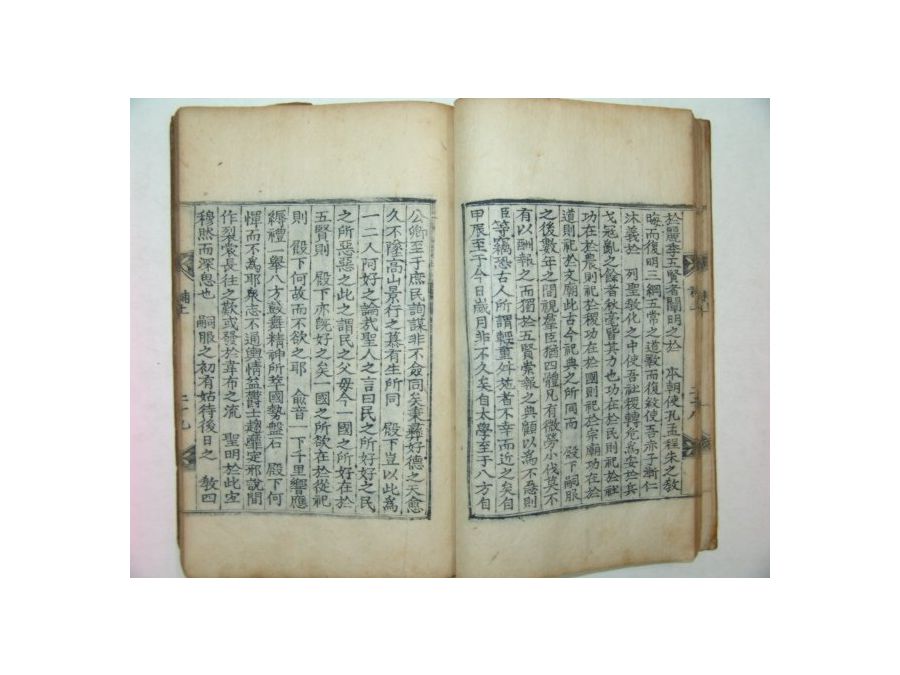 於麗季五賢者闡明之於 本朝使孔孟程朱之敎
晦而復明三綱五常之道斁而復敍使吾赤子漸仁
沐義於 列聖敎化之中使吾社稷轉危爲安於兵
戈寇亂之餘者秋毫皆其力也功在於民則祀於社
功在於農則祀於稷功在於國則祀於宗廟功在於
道則祀於文廟此古今祀典之所同而 殿下嗣服
之後數年之間視羣臣猶四體凡有微勞小伐莫不
有以酬報之而獨於五賢崇報之典顧以爲不急則
臣等竊恐古人所謂輕重件施者不幸而近之矣自
甲辰至于今日歲月非不久矣自太學至于八方自
補上
二十八
公卿至于庶民詢謀非不僉同矣秉彛好德之天愈
久不墜高山景行之慕有生所同 殿下豈以此爲
一二人阿好之論哉聖人之言曰民之所好好之民
之所惡惡之此之謂民之父母今一國之所好在於
五賢則 殿下亦旣好之矣一國之所欲在於從祀
則 殿下何故而不欲之耶 兪音一下千里響應
縟禮一擧八方鼓舞精神所萃國勢盤石 殿下何
憚而不爲耶衆志不通輿情益欝士趨靡定邪說間
作裂裳長往之歎或發於韋布之流 聖明於此宜
穆然而深思也 嗣服之初有姑待後日之 敎四
補上
二十九